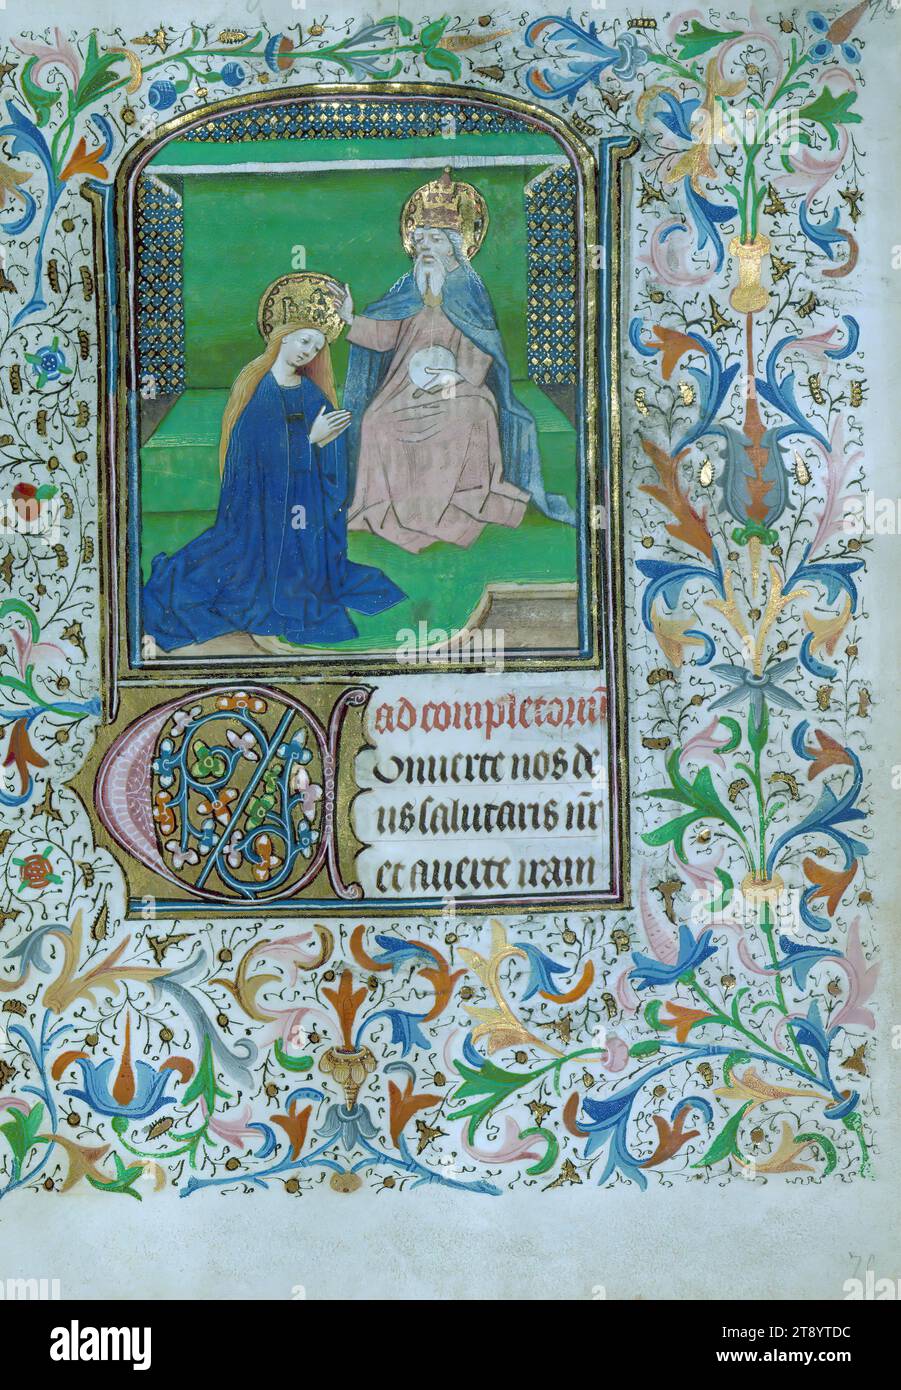 ad completoriū
Conuerte nos de
us salutaris nr̄
et auerte iram
alamy
Image ID: 2T8YTDC
www.alamy.com